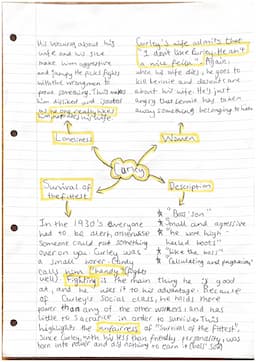 His worrying about his
wife and his size
make him aggressive
and jumpy. He picks fights
with the wrong men to
prove something. This makes
him disliked and
no one really likes
him not even his wife.
Curley's wife admits that
"I don't like Curley. He ain't
a nice fella". Again,
when his wife dies, he goes to
kill Lennie and doesn't care
about his wife. He's just
angry that Lennie has taken
away something belonging to him
Loneliness
Women
Curley
Survival of
the fittest
Description
In the 1930's everyone
had to be alert, otherwise
someone could put something
over on you. Curley was
a small boxer. Candy
calls him "handy" (fights
well). Fighting is the main thing he is good
at, and he uses it to his advantage. Because
of Curley's social class, he holds more
power than any of the other workers, and has
little to sacrifice in order to survive. This
highlights the unfairness of "Survival of the Fittest",
Since Curley, with his less than friendly personality, was
born into power and did nothing to earn it (boss' son)
★ "Boss' son"
★ Small and agressive
★ "he wore high-
heeled boots"
★ "like the boss"
★ "Calculating and pugnacious"